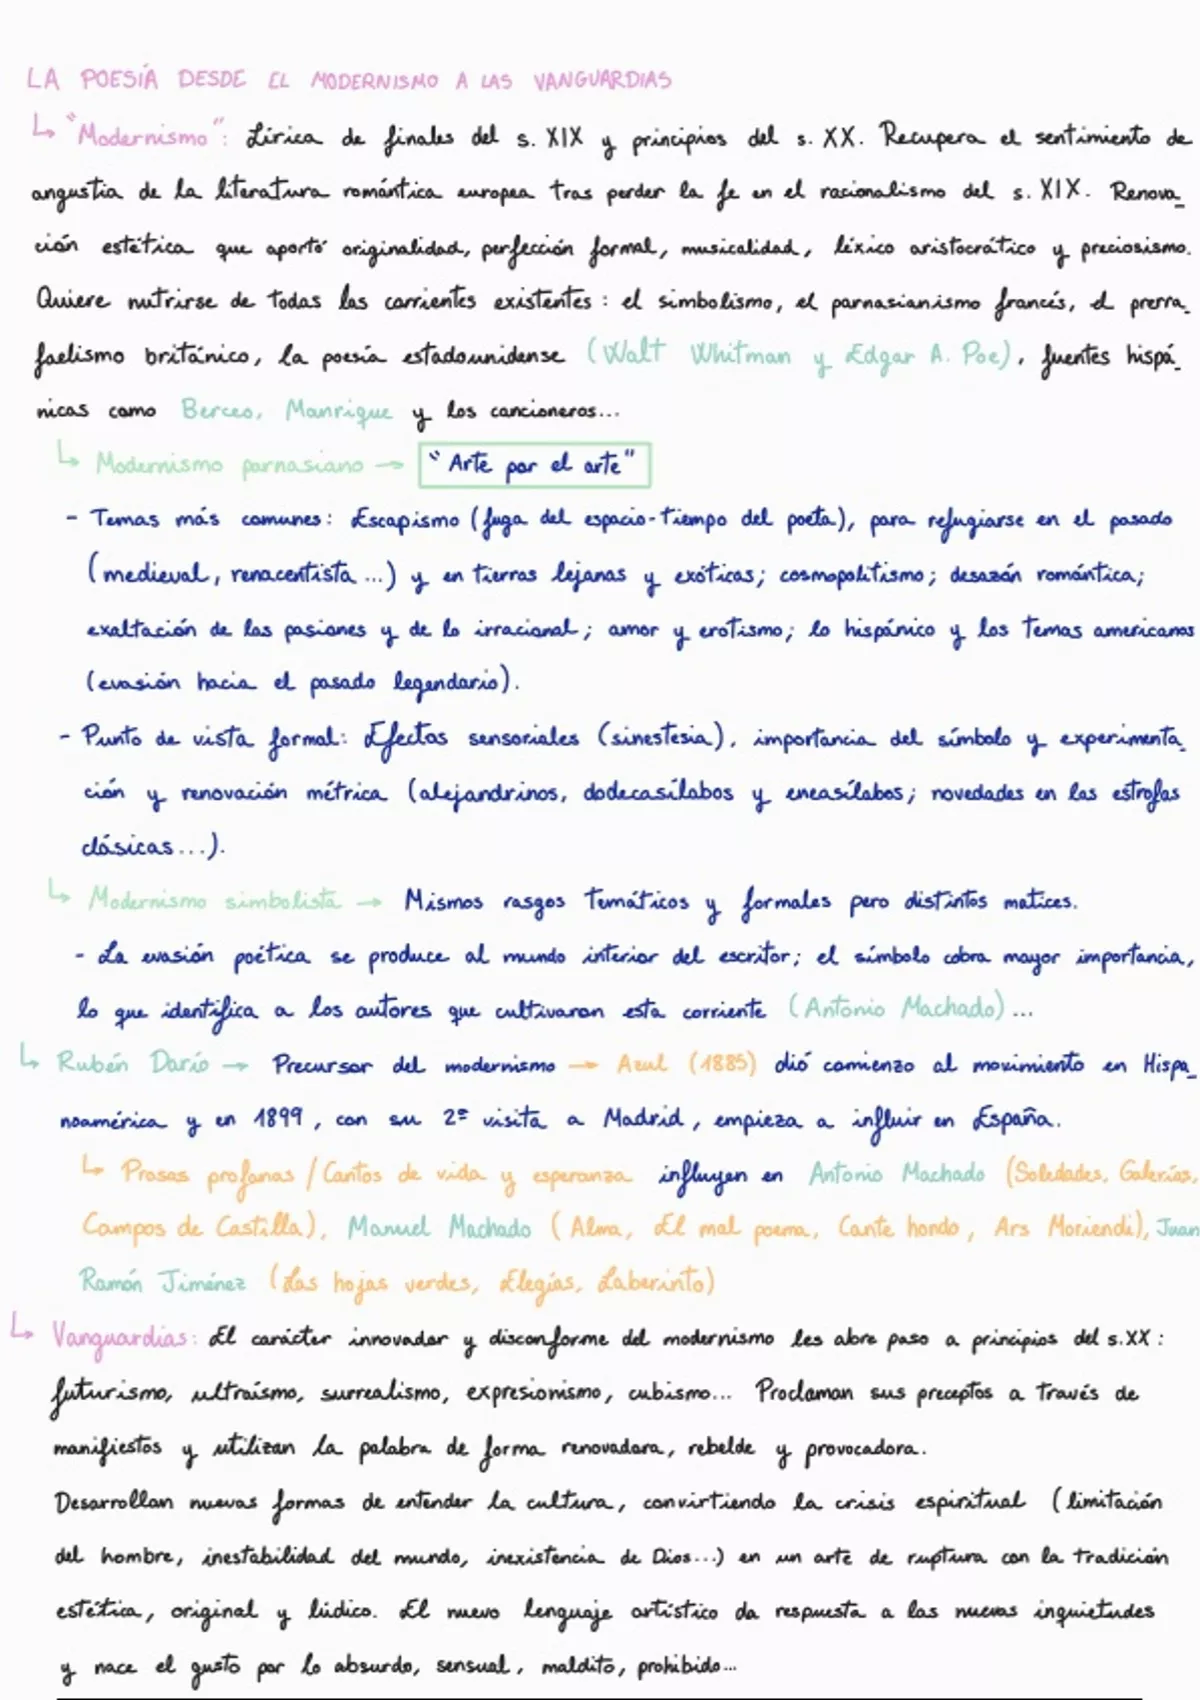 LA POESÍA DESDE EL MODERNISMO A LAS VANGUARDIAS
↳ "Modernismo": Lírica de finales del s. XIX y principios del s. XX. Recupera el sentimiento de
angustia de la literatura romántica europea tras perder la fe en el racionalismo del s. XIX. Renova_
ción estética que aportó originalidad, perfección formal, musicalidad, léxico aristocrático y preciosismo.
Quiere nutrirse de todas las corrientes existentes: el simbolismo, el parnasianismo francés, el prerra_
faelismo británico, la poesía estadounidense (Walt Whitman y Edgar A. Poe), fuentes hispá_
nicas como Berceo, Manrique y los cancioneros...
↳ Modernismo parnasiano → "Arte por el arte"
- Temas más comunes: Escapismo (fuga del espacio-tiempo del poeta), para refugiarse en el pasado
(medieval, renacentista...) y en tierras lejanas y exóticas; cosmopolitismo; desazón romántica;
exaltación de las pasiones y de lo irracional; amor y erotismo; lo hispánico y los temas americanos
(evasión hacia el pasado legendario).
- Punto de vista formal: Efectos sensoriales (sinestesia), importancia del símbolo y experimenta_
ción y renovación métrica (alejandrinos, dodecasílabos y eneasílabos; novedades en las estrofas
clásicas...).
↳ Modernismo simbolista → Mismos rasgos temáticos y formales pero distintos matices.
- La evasión poética se produce al mundo interior del escritor; el símbolo cobra mayor importancia,
lo que identifica a los autores que cultivaron esta corriente (Antonio Machado)...
↳ Rubén Darío → Precursor del modernismo → Azul (1885) dió comienzo al movimiento en Hispa_
noamérica y en 1899, con su 2ª visita a Madrid, empieza a influir en España.
↳ Prosas profanas / Cantos de vida y esperanza influyen en Antonio Machado (Soledades, Galerías,
Campos de Castilla), Manuel Machado (Alma, El mal poema, Cante hondo, Ars Moriendi), Juan
Ramón Jiménez (Las hojas verdes, Elegías, Laberinto)
↳ Vanguardias: El carácter innovador y disconforme del modernismo les abre paso a principios del s.XX:
futurismo, ultraísmo, surrealismo, expresionismo, cubismo... Proclaman sus preceptos a través de
manifiestos y utilizan la palabra de forma renovadora, rebelde y provocadora.
Desarrollan nuevas formas de entender la cultura, convirtiendo la crisis espiritual (limitación
del hombre, inestabilidad del mundo, inexistencia de Dios...) en un arte de ruptura con la tradición
estética, original y lúdico. El nuevo lenguaje artístico da respuesta a las nuevas inquietudes
y nace el gusto por lo absurdo, sensual, maldito, prohibido...